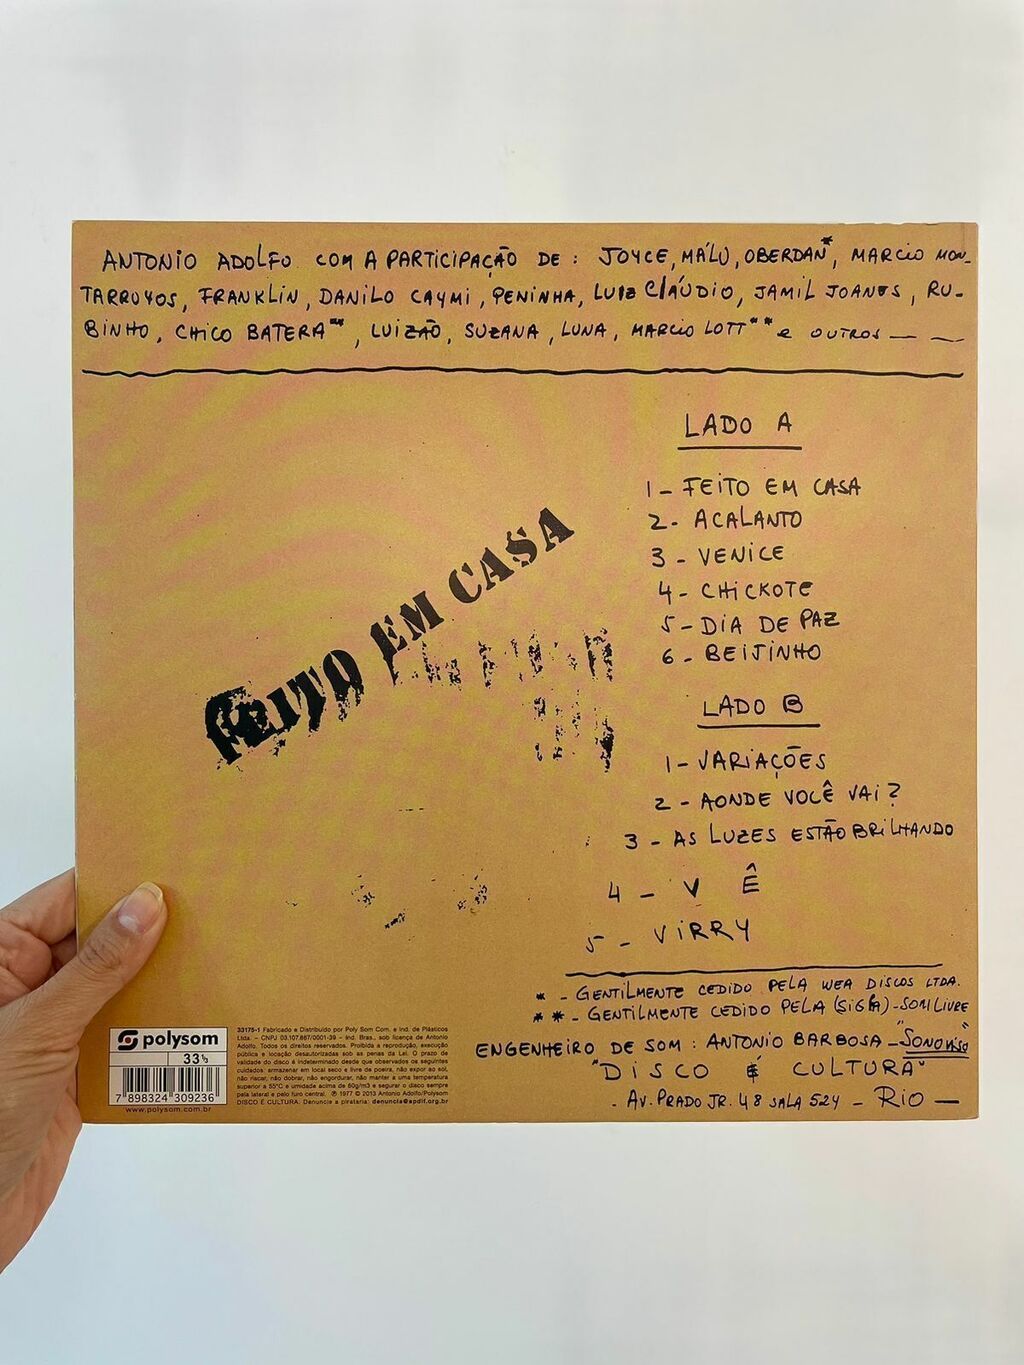 ANTONIO ADOLFO COM A PARTICIPAÇÃO DE : JOYCE, MÁLU, OBERDAN*, MARCIO MON-
TARROYOS, FRANKLIN, DANILO CAYMI, PENINHA, LUIZ CLÁUDIO, JAMIL JOANES, RU-
BINHO, CHICO BATERA**, LUIZÃO, SUZANA, LUNA, MARCIO LOTT** e OUTROS — —
LADO A
1 - FEITO EM CASA
2 - ACALANTO
3 - VENICE
4 - CHICKOTE
5 - DIA DE PAZ
6 - BEIJINHO
FEITO EM CASA
LADO B
1 - VARIAÇÕES
2 - AONDE VOCÊ VAI?
3 - AS LUZES ESTÃO BRILHANDO
4 - VÊ
5 - VIRRY
* - GENTILMENTE CEDIDO PELA WEA DISCOS LTDA.
** - GENTILMENTE CEDIDO PELA (SIGLA) - SOM LIVRE
ENGENHEIRO DE SOM : ANTONIO BARBOSA - "SONOVISO"
"DISCO É CULTURA"
- AV. PRADO JR. 48 SALA 524 - RIO —
polysom
33⅓
7 898324 309236
www.polysom.com.br
33175-1 Fabricado e Distribuído por Poly Som Com. e Ind. de Plásticos
Ltda. – CNPJ 03.107.887/0001-39 – Ind. Bras., sob licença de Antonio
Adolfo. Todos os direitos reservados. Proibida a reprodução, execução
pública e locação desautorizadas sob as penas da Lei. O prazo de
validade do disco é indeterminado desde que observados os seguintes
cuidados: armazenar em local seco e livre de poeira, não expor ao sol,
não riscar, não dobrar, não engordurar, não manter a uma temperatura
superior a 55°C e umidade acima de 60g/m3 e segurar o disco sempre
pela lateral e pelo furo central. ℗ 1977 © 2013 Antonio Adolfo/Polysom
DISCO É CULTURA. Denuncie a pirataria: denuncia@apdif.org.br